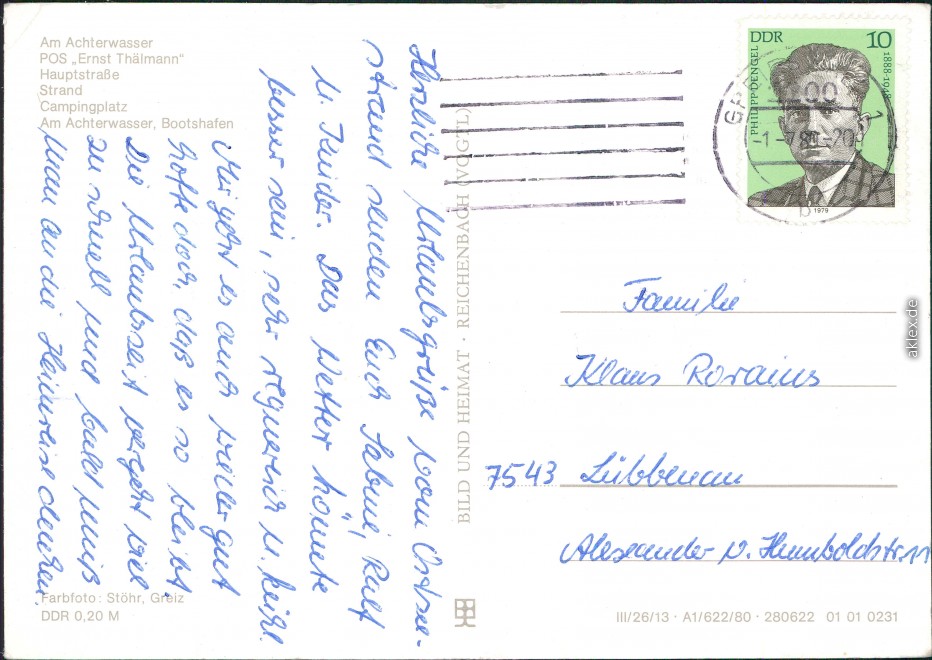 Am Achterwasser
POS „Ernst Thälmann“
Hauptstraße
Strand
Campingplatz
Am Achterwasser, Bootshafen
Herzliche Urlaubsgrüße vom Ostsee-
strand senden Euch Sabine, Ralf
u. Kinder. Das Wetter könnte
besser sein, sehr regnerisch u.
Mir geht es auch weiter gut
hoffe doch, daß es so bleibt.
Die Urlaubszeit vergeht viel
zu schnell und bald muß
man an die Heimreise denken.
Farbfoto: Stöhr, Greiz
DDR 0,20 M
BILD UND HEIMAT · REICHENBACH (VOGTL)
DDR 10
PHILIPP DENGEL
1888-1948
1979
Familie
Klaus
7543 Lübbenau
Alexander v. Humboldtstr.
III/26/13 · A1/622/80 · 280622 01 01 0231
aklex.de